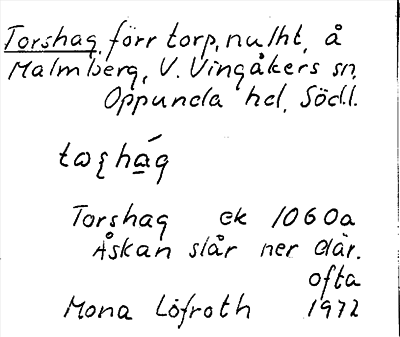 Torshag, förr torp, nu lht, å
Malmberg, V. Vingåkers sn,
Oppunda hd, Södl.
Torshag ek 1060a
Åskan slår ner där.
ofta
Mona Löfroth 1972